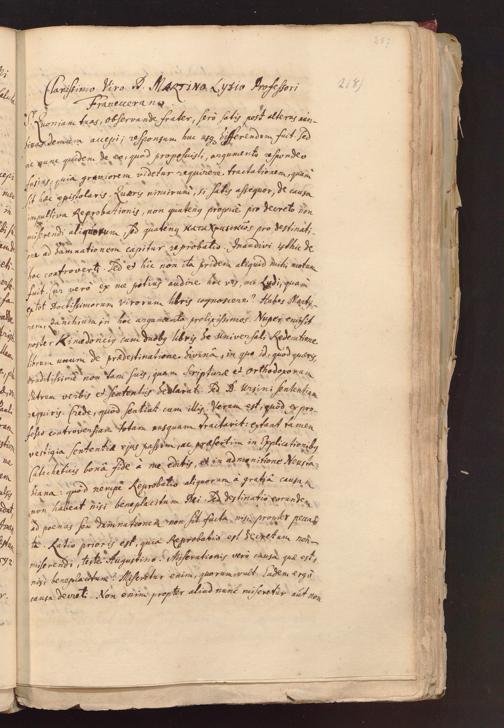 257
218)
Clarissimo Viro D. MARTINO Lydio Professori
Franeccerano
S. Quoniam tuas, observande frater, serò satis post alteras nun-
accepi; responsum huc usq differendum fuit. Sed
ne nunc quidem de eo, quod proposuisti, argumento respondeo
fusius, quia graviorem videtur requirere tractationem, quàm
sit hæc epistolaris. Quæris nimirum, si satis assequor, de causa
impulsiva Reprobationis, non quatenq propriè pro decreto non
miserendi aliquorum, sed quatenq καταχρηστικῶς pro destinati-
ne ad damnationem capitur reprobatio. Inaudivi isthic de
hoc controverti. Sed et hic non ita pridem aliquid mihi motum
fuit. Ut verò ex me potius audire hoc vis, mi Lydi, quàm
ex tot doctissimorum virorum libris cognoscere? Habes Marty-
rem, Zanchium in hoc argumento prolixissimos. Nuper emisit
noster Kimedoncius cum duobq libris de Universali Redemtione
librum unum de prædestinatione divina, in quo id, quod quæris,
eruditissimè non tam suis, quam Scripturæ et orthodoxorum
Patrum verbis et sententiis declarat. Sed D. Ursini sententiam
requiris. Crede, quòd sentiat cum illis. Verum est, quòd ex pro-
fesso controversiam totam nusquam tractarit: extant tamen
vestigia sententiæ ejus passim, ac præsertim in Explicationibq
Catecheticis bonâ fide à me editis, et in admonitione Neusta-
diana: quod nempe Reprobatio aliquorum à gratiâ causam
non habeat nisi beneplacitum Dei. Sed destinatio eorundem
ad poenas seu damnationem non sit facta nisi propter pecca-
ta. Ratio prioris est, quia Reprobatio est decretum non
miserendi, teste Augustino. Miserationis verò causa quæ est,
nisi beneplacitum? Miseretur enim, quorum vult. Eadem ergò
causa decreti. Non enim propter aliud nunc miseretur aut non